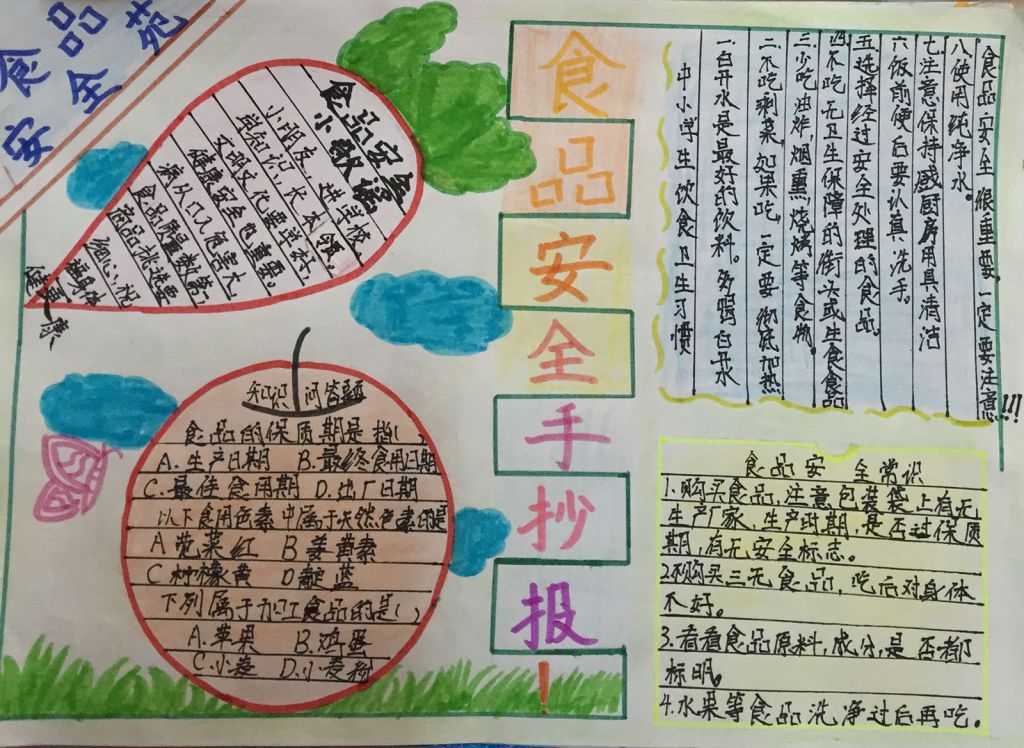 食品
安全苑
食品安全
小歌谣
小朋友 进学校
学知识 长本领。
文明文化要学好，
健康安全也重要。
病从口入危害大
食品质量数第1，
商品挑选要
细心，祝
福身体
健康
食品安全手抄报！
食品安全很重要，一定要注意!!!
八使用纯净水。
七.注意保持感厨房用具清洁
六饭前便后要认真洗手。
五选择经过安全处理的食品。
四不吃无卫生保障的街头或生食食品
三少吃油炸,烟熏烧烤等食物。
二.不吃剩菜,如果吃,一定要彻底加热
一白开水是最好的饮料。多喝白开水
中小学生饮食卫生习惯
知识问答题
食品的保质期是指( )
A.生产日期 B.最终食用日期
C.最佳食用期 D.出厂日期
以下食用色素中属于天然色素的是
A苋菜红 B姜黄素
C柠檬黄 D靛蓝
下列属于加工食品的是( )
A.苹果 B.鸡蛋
C.小麦 D.小麦粉
食品安全常识
1.购买食品,注意包装袋上有无
生产厂家,生产时期,是否过保质
期,有无安全标志。
2不购买三无食品,吃后对身体
不好。
3.看看食品原料,成分,是否都
标明。
4.水果等食品洗净过后再吃。